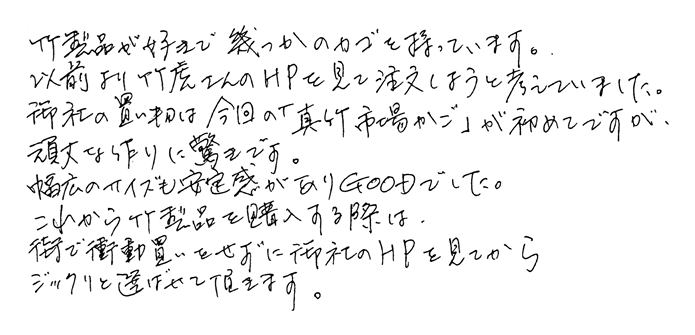 竹製品が好きで幾つかのカゴを持っています。
以前より竹虎さんのHPを見て注文しようと考えていました。
御社の買い物は今回の「真竹市場かご」が初めてですが、
頑丈な作りに驚きです。
幅広のサイズも安定感がありGOODでした。
これから竹製品を購入する際は、
街で衝動買いをせずに御社のHPを見てから
ジックリと選ばせて頂きます。